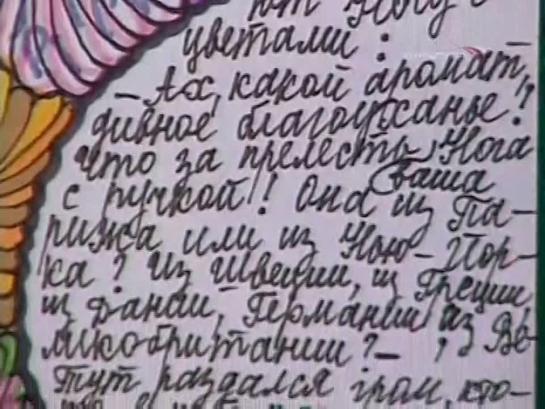 ют Ногу с
цветами:
– Ах, какой аромат,
дивное благоуханье!
Что за прелесть Нога
ваша
с ручкой! Она из Па–
рижа или из Нью–Йор–
ка? Из Швеции, из Греции,
из Дании, Германии из Ве–
ликобритании? –
Тут раздался гром, кто–